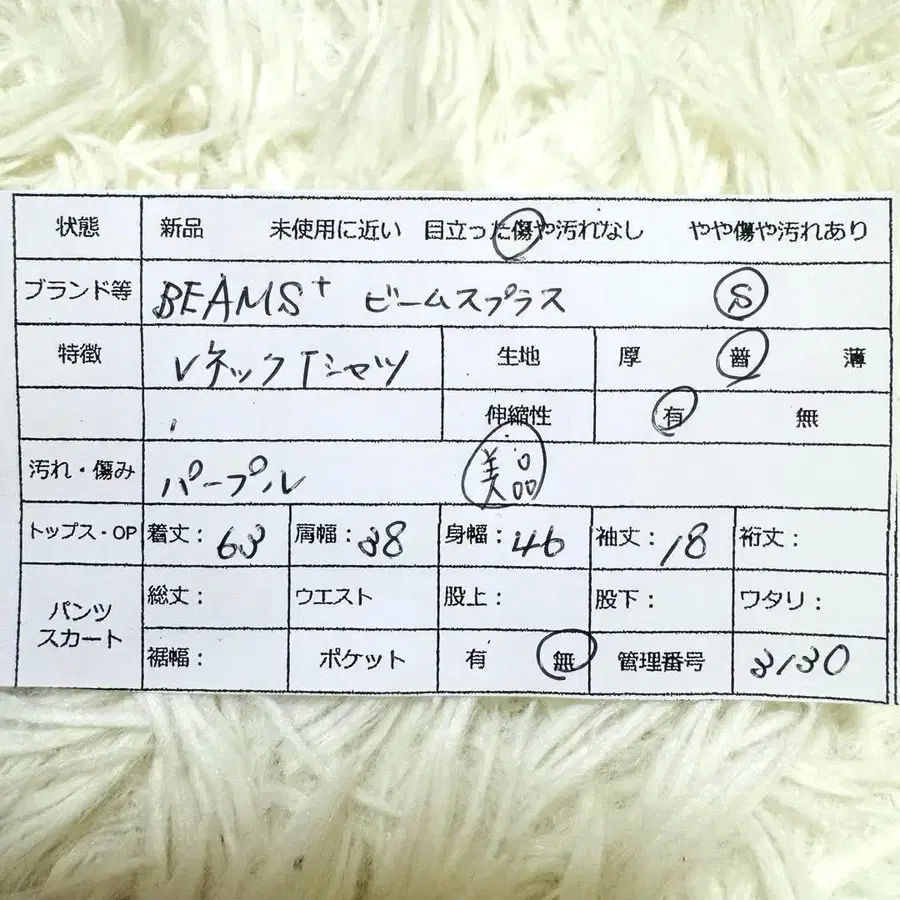 状態 新品 未使用に近い 目立った傷や汚れなし やや傷や汚れあり
ブランド等 BEAMS+ ビームスプラス S
特徴 Vネック Tシャツ 生地 厚 普 薄
伸縮性 有 無
汚れ・傷み パープル 美品
トップス・OP 着丈: 63 肩幅: 38 身幅: 46 袖丈: 18 裄丈:
パンツ
スカート
総丈: ウエスト 股上: 股下: ワタリ:
裾幅: ポケット 有 無 管理番号 3130